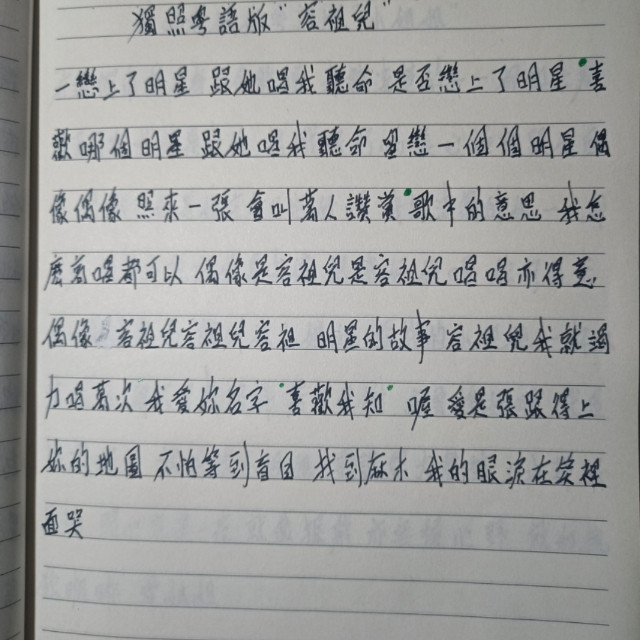 獨照粵語版"容祖兒"
一戀上了明星 跟她唱我聽命 是否戀上了明星"喜
歡哪個明星 跟她唱我聽命 留戀一個個明星 偶
像偶像 照來一張 會叫萬人讚賞"歌中的意思 我怎
麼去唱都可以 偶像是容祖兒是容祖兒 唱唱亦得意
偶像 容祖兒容祖兒容祖 明星的故事 容祖兒我就竭
力唱萬次 我愛妳名字"喜歡我知"喔 愛是張跟得上
妳的地圖 不怕等到盲目 找到麻木 我的眼淚在笑裡
面哭